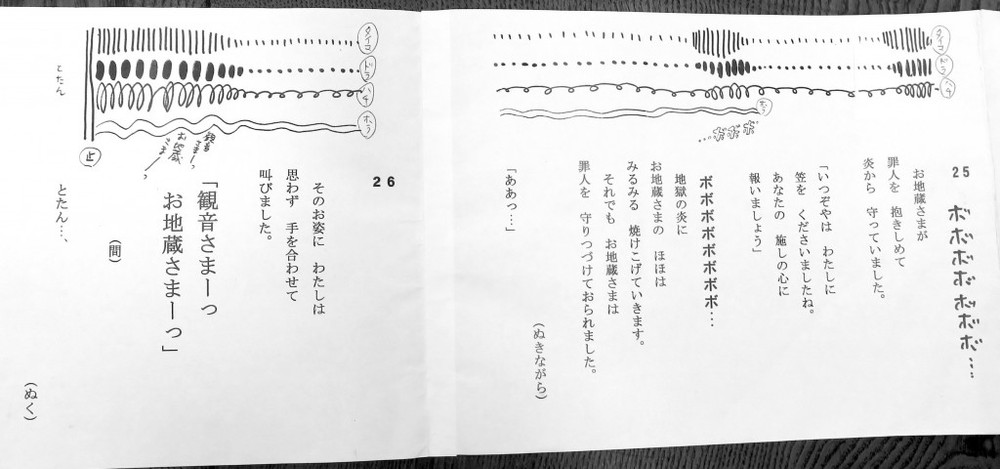 タイコ
ドラ
ハチ
ホラ
…ボボボ
25
ボボボボボボボ…
お地蔵さまが
罪人を　抱きしめて
炎から　守っていました。
「いつぞやは　わたしに
笠を　くださいましたね。
あなたの　施しの心に
報いましょう」
ボボボボボボボボ…
地獄の炎に
お地蔵さまの　ほほは
みるみる　焼けこげていきます。
それでも　お地蔵さまは
罪人を　守りつづけておられました。
（ぬきながら）
「ああっ…」
タイコ
ドラ
ハチ
ホラ
観音さまーっ
お地蔵さまーっ
止
とたん
26
そのお姿に　わたしは
思わず　手を合わせて
叫びました。
「観音さまーっ
お地蔵さまーっ」
（間）
とたん…、
（ぬく）